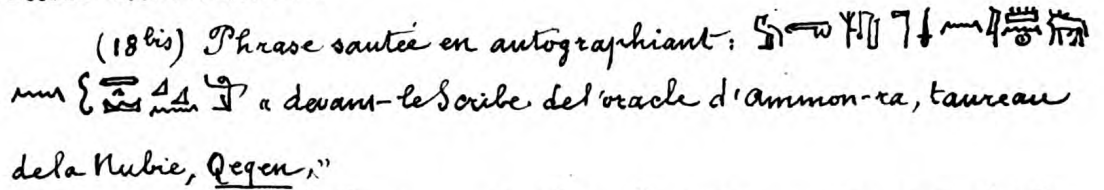 (18 bis) Phrase sautée en autographiant:
« devant-le Scribe de l'oracle d'Ammon-ra, taureau
de la Nubie, Qeqen,"